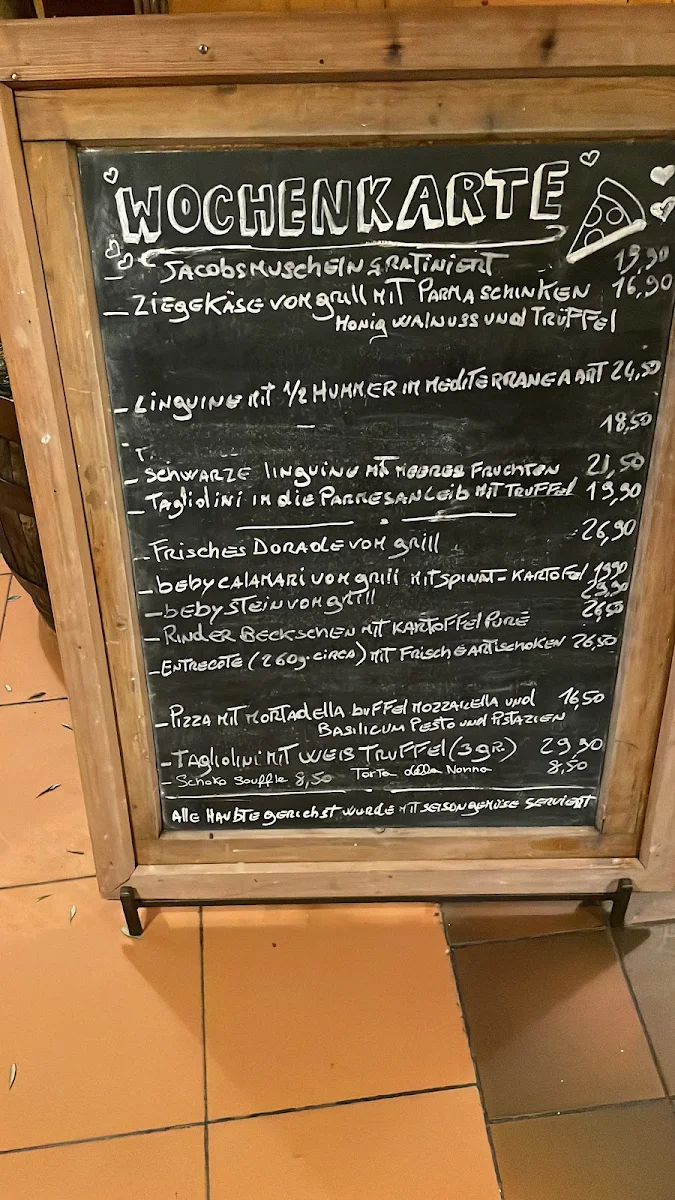 WOCHENKARTE
- JACOBSMUSCHELN GRATINIERT 19,90
- ZIEGEKÄSE VOM grill MIT PARMA SCHINKEN 16,90
HONIG WALNUSS UND TRÜFFEL
- LINGUINE MIT 1/2 HUMMER IM MEDITERRANEA ART 24,50
18,50
- T
- SCHWARZE linguine MIT MEERES FRUCHTEN 21,50
- TAgliolini in die PARMESANLEIB MIT TRUFFEL 19,90
- FRISCHES DORADE VOM grill 26,90
- bEBY CALAMARI VOM grill MIT SPINAT-KARTOFEl 19,90
- bEBY STEIN VOM grill 29,90
- RINDER BECKSCHEN MIT KARTOFFEl PURÈ 26,50
- ENTRECOTE (260g. CIRCA) MIT FRISCHE ARTISCHOKEN 26,50
- PIZZA MIT MORTADELLA bUFFEl MOZZARELLA UND 16,50
BASILICUM PESTO UND PISTAZIEN
- TAgliolini MIT WEIß TRUFFEl (3gR.) 29,90
- Schoko Souffle 8,50 Torta della Nonna 8,50
ALLE HAUBTE gerichst WURDE MIT SEISON gEMÜSE SERVIERT